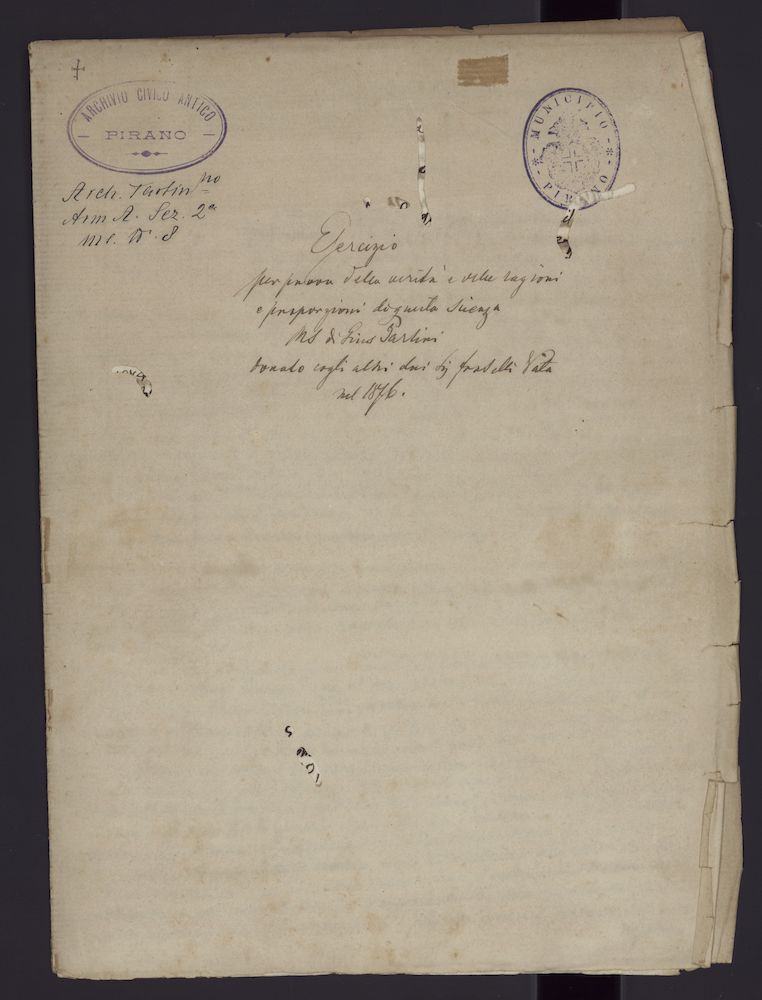 ARCHIVIO CIVICO ANTICO
PIRANO
MUNICIPIO
PIRANO
Arch. Tartin.no
Arm A. Sez. 2a
N. 8
Esercizio
per prova della verità e delle ragioni
e proporzioni di questa Scienza
MS di Gius Tartini
donato cogli altri dai Sij fratelli Vata
nel 1876.